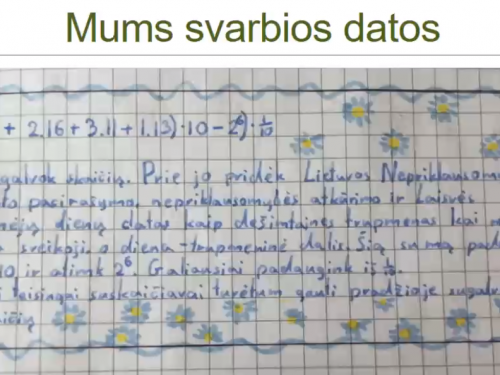 Mums svarbios datos
+ 2.16 + 3.11 + 1.13) · 10 - 2⁶) · 1/10
galvok skaičių. Prie jo pridėk Lietuvos Nepriklausom
to pasirašymo, nepriklausomybės atkūrimo ir Laisvės
nėjų dienų datas kaip dešimtaines trupmenas kai
sveikoji, o diena - trupmeninė dalis. Šią sumą pad
10 ir atimk 2⁶. Galiausiai padaugink iš 1/10.
i teisingai suskaičiavai turėtum gauti pradžioje sugalv
aičių